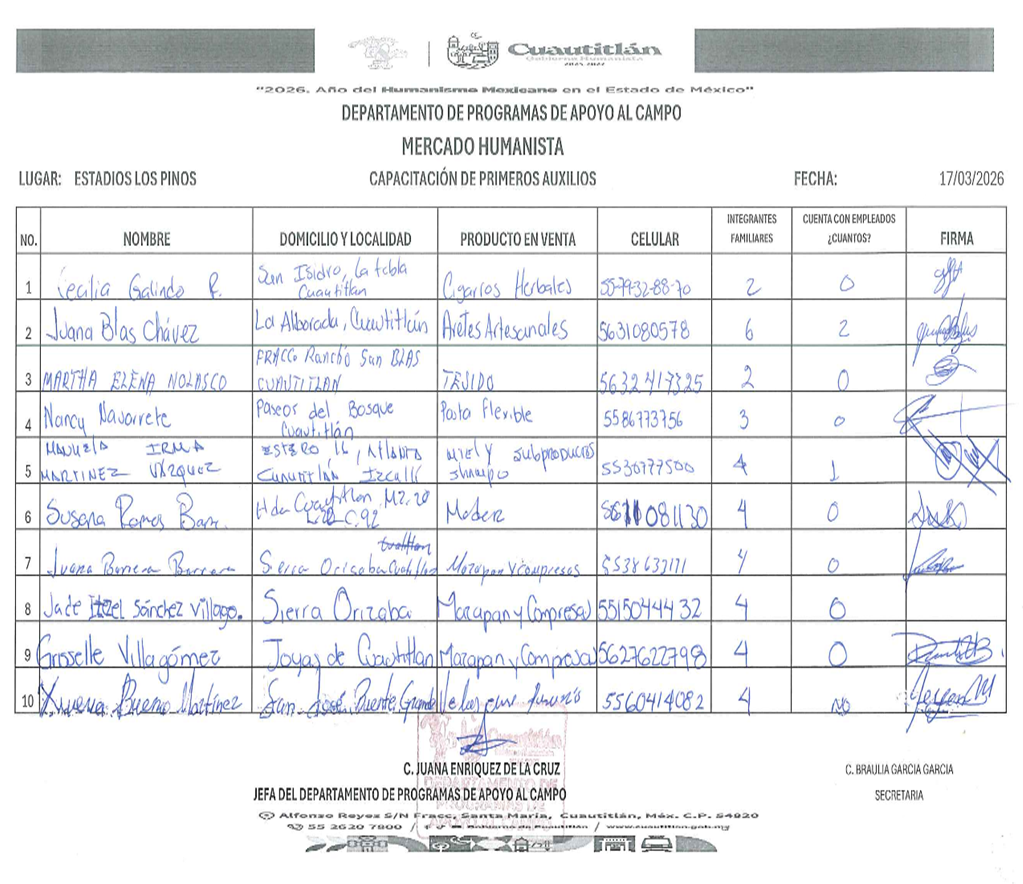 Cuautitlán
Gobierno Humanista
2025-2027
"2026. Año del Humanismo Mexicano en el Estado de México"
DEPARTAMENTO DE PROGRAMAS DE APOYO AL CAMPO
MERCADO HUMANISTA
LUGAR: ESTADIOS LOS PINOS CAPACITACIÓN DE PRIMEROS AUXILIOS FECHA: 17/03/2026
NO. NOMBRE DOMICILIO Y LOCALIDAD PRODUCTO EN VENTA CELULAR INTEGRANTES FAMILIARES CUENTA CON EMPLEADOS ¿CUANTOS? FIRMA
1 Cecilia Galindo R. San Isidro, La tebla Cuautitlan Cigarros Herbales 55-79-32-88-70 2 0
2 Juana Blas Chávez La Alborada, Cuautitlán Aretes Artesanales 5631080578 6 2
3 MARTHA ELENA NOLASCO FRACCO Rancho San BLAS CUAUTITLAN TEJIDO 5632417325 2 0
4 Nancy Navarrete Paseos del Bosque Cuautitlán Pasta Flexible 5586773756 3 0
5 MANUELA IRMA MARTINEZ VÁZQUEZ ESTERO 16, Atlanta Cuautitlán Izcalli MIEL y subproductos shampoo 5530777500 4 1
6 Susana Ramos Hda Cuautitlan MZ. 20 C.92 081130 4 0
7 Juana Barrera Sierra Orizaba Mazapan y compresas 5538637171 4 0
8 Jade Itzel Sánchez Villago. Sierra Orizaba Mazapan y Compresas 5515044432 4 0
9 Grisselle Villagómez Joyas de Cuautitlan Mazapan y Compresas 5627622798 4 0
10 Bueno Martínez San José Puente Grande Velas 5560414082 4 NO
C. JUANA ENRIQUEZ DE LA CRUZ
JEFA DEL DEPARTAMENTO DE PROGRAMAS DE APOYO AL CAMPO
C. BRAULIA GARCIA GARCIA
SECRETARIA
Alfonso Reyes S/N Fracc. Santa María, Cuautitlán, Méx. C.P. 54820
55 2620 7800 / Gobierno de Cuautitlán / www.cuautitlan.gob.mx